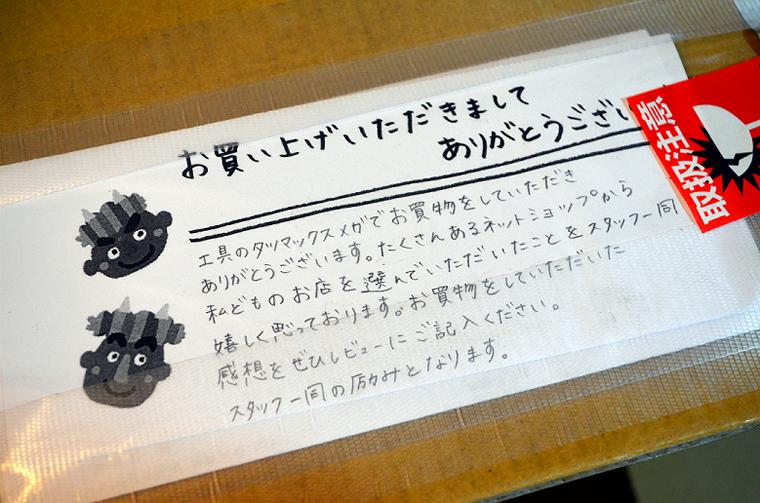 お買い上げいただきまして
ありがとうござい
工具のタツマックスメガでお買物をしていただき
ありがとうございます。たくさんあるネットショップから
私どものお店を選んでいただいたことをスタッフ一同
嬉しく思っております。お買物をしていただいた
感想をぜひレビューにご記入ください。
スタッフ一同の励みとなります。
取扱注意